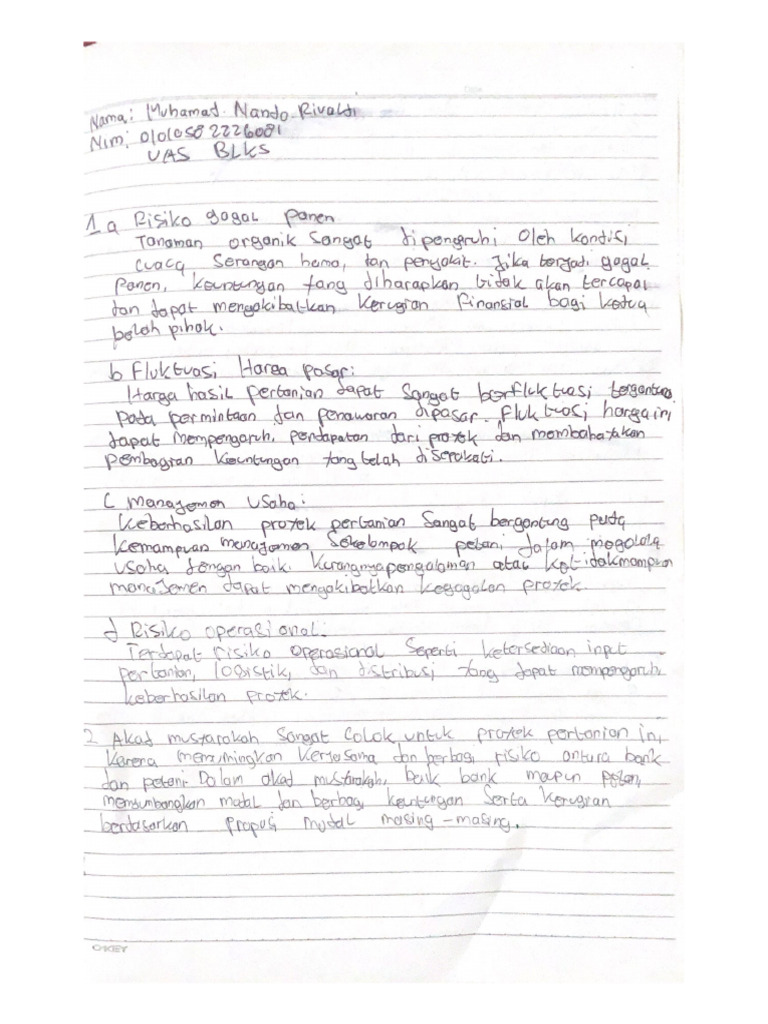 Nama: Muhamad Nando Rivaldi
Nim: 0101058 2226081
UAS BLKS
1 a Risiko gagal panen
Tanaman organik sangat dipengruhi oleh kondisi
cuaca serangan hama, dan penyakit. Jika terjadi gagal
panen, keuntungan yang diharapkan tidak akan tercapai
dan dapat mengakibatkan kerugian finansial bagi kedua
belah pihak.
b Fluktuasi Harga pasar:
Harga hasil pertanian dapat sangat berfluktuasi tergantung
pada permintaan dan penawaran dipasar. Fluktuasi harga ini
dapat mempengaruhi pendapatan dari proyek dan membahayakan
pembagian keuntungan yang telah disepakati.
C Managemen usaha:
Keberhasilan proyek pertanian sangat bergantung pada
kemampuan managemen sekelompok petani dalam
usaha dengan baik. Kurangnya pengalaman atau ketidakmampuan
manajemen dapat mengakibatkan kegagalan proyek.
d Risiko operasional.
Terdapat risiko operasional seperti ketersediaan input
pertanian, logistik, dan distribusi yang dapat mempengaruhi
keberhasilan proyek.
2. Akad musyarakah sangat cocok untuk proyek pertanian ini,
karena memumingkan kerjasama dan berbagi risiko antara bank
dan petani. Dalam akad musyarakah, baik bank maupun petani,
menyumbangkan modal dan berbagi keuntungan serta kerugian
berdasarkan propusi modal masing-masing.
OKEY